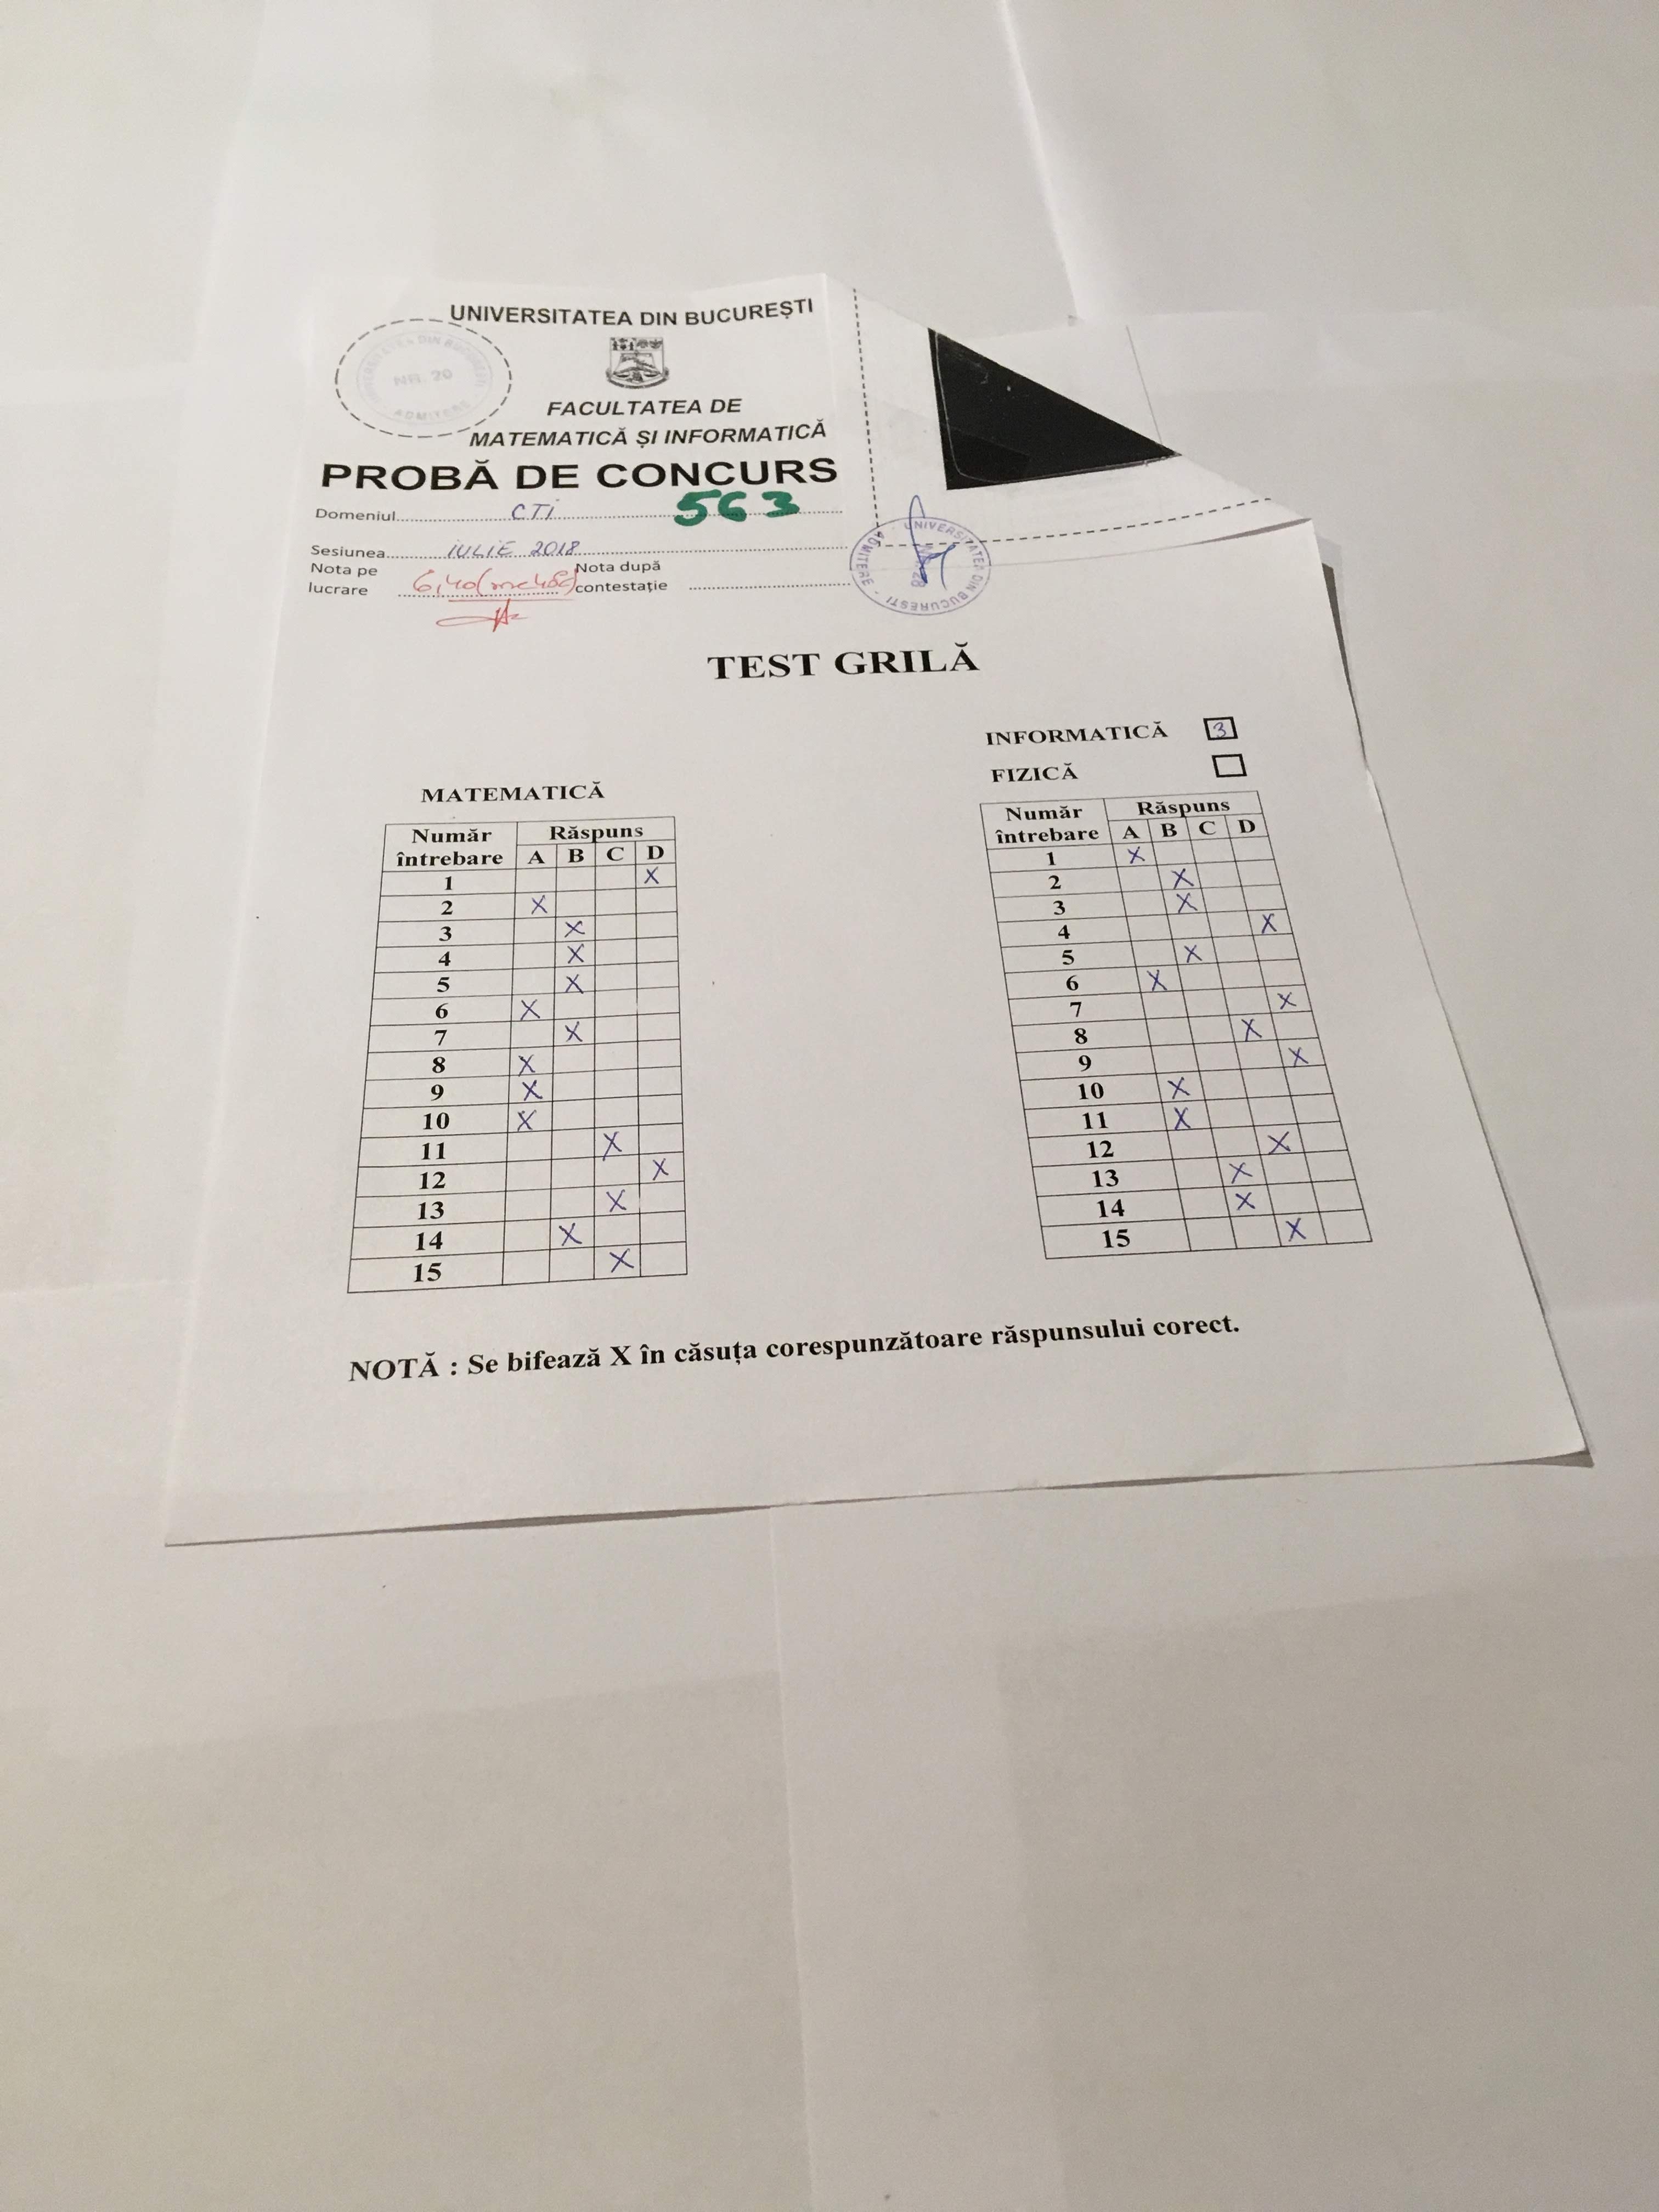 UNIVERSITATEA DIN BUCUREȘTI
UNIVERSITATEA DIN BUCUREȘTI
NR. 20
ADMITERE
FACULTATEA DE
MATEMATICĂ ȘI INFORMATICĂ
PROBĂ DE CONCURS
Domeniul CTI 563
Sesiunea IULIE 2018
Nota pe lucrare 6,40 Nota după contestație
UNIVERSITATEA DIN BUCURESTI - ADMITERE -
TEST GRILĂ
INFORMATICĂ 3
FIZICĂ
MATEMATICĂ
Număr întrebare Răspuns
A B C D
1 X
2 X
3 X
4 X
5 X
6 X
7 X
8 X
9 X
10 X
11 X
12 X
13 X
14 X
15 X
Număr întrebare Răspuns
A B C D
1 X
2 X
3 X
4 X
5 X
6 X
7 X
8 X
9 X
10 X
11 X
12 X
13 X
14 X
15 X
NOTĂ : Se bifează X în căsuța corespunzătoare răspunsului corect.